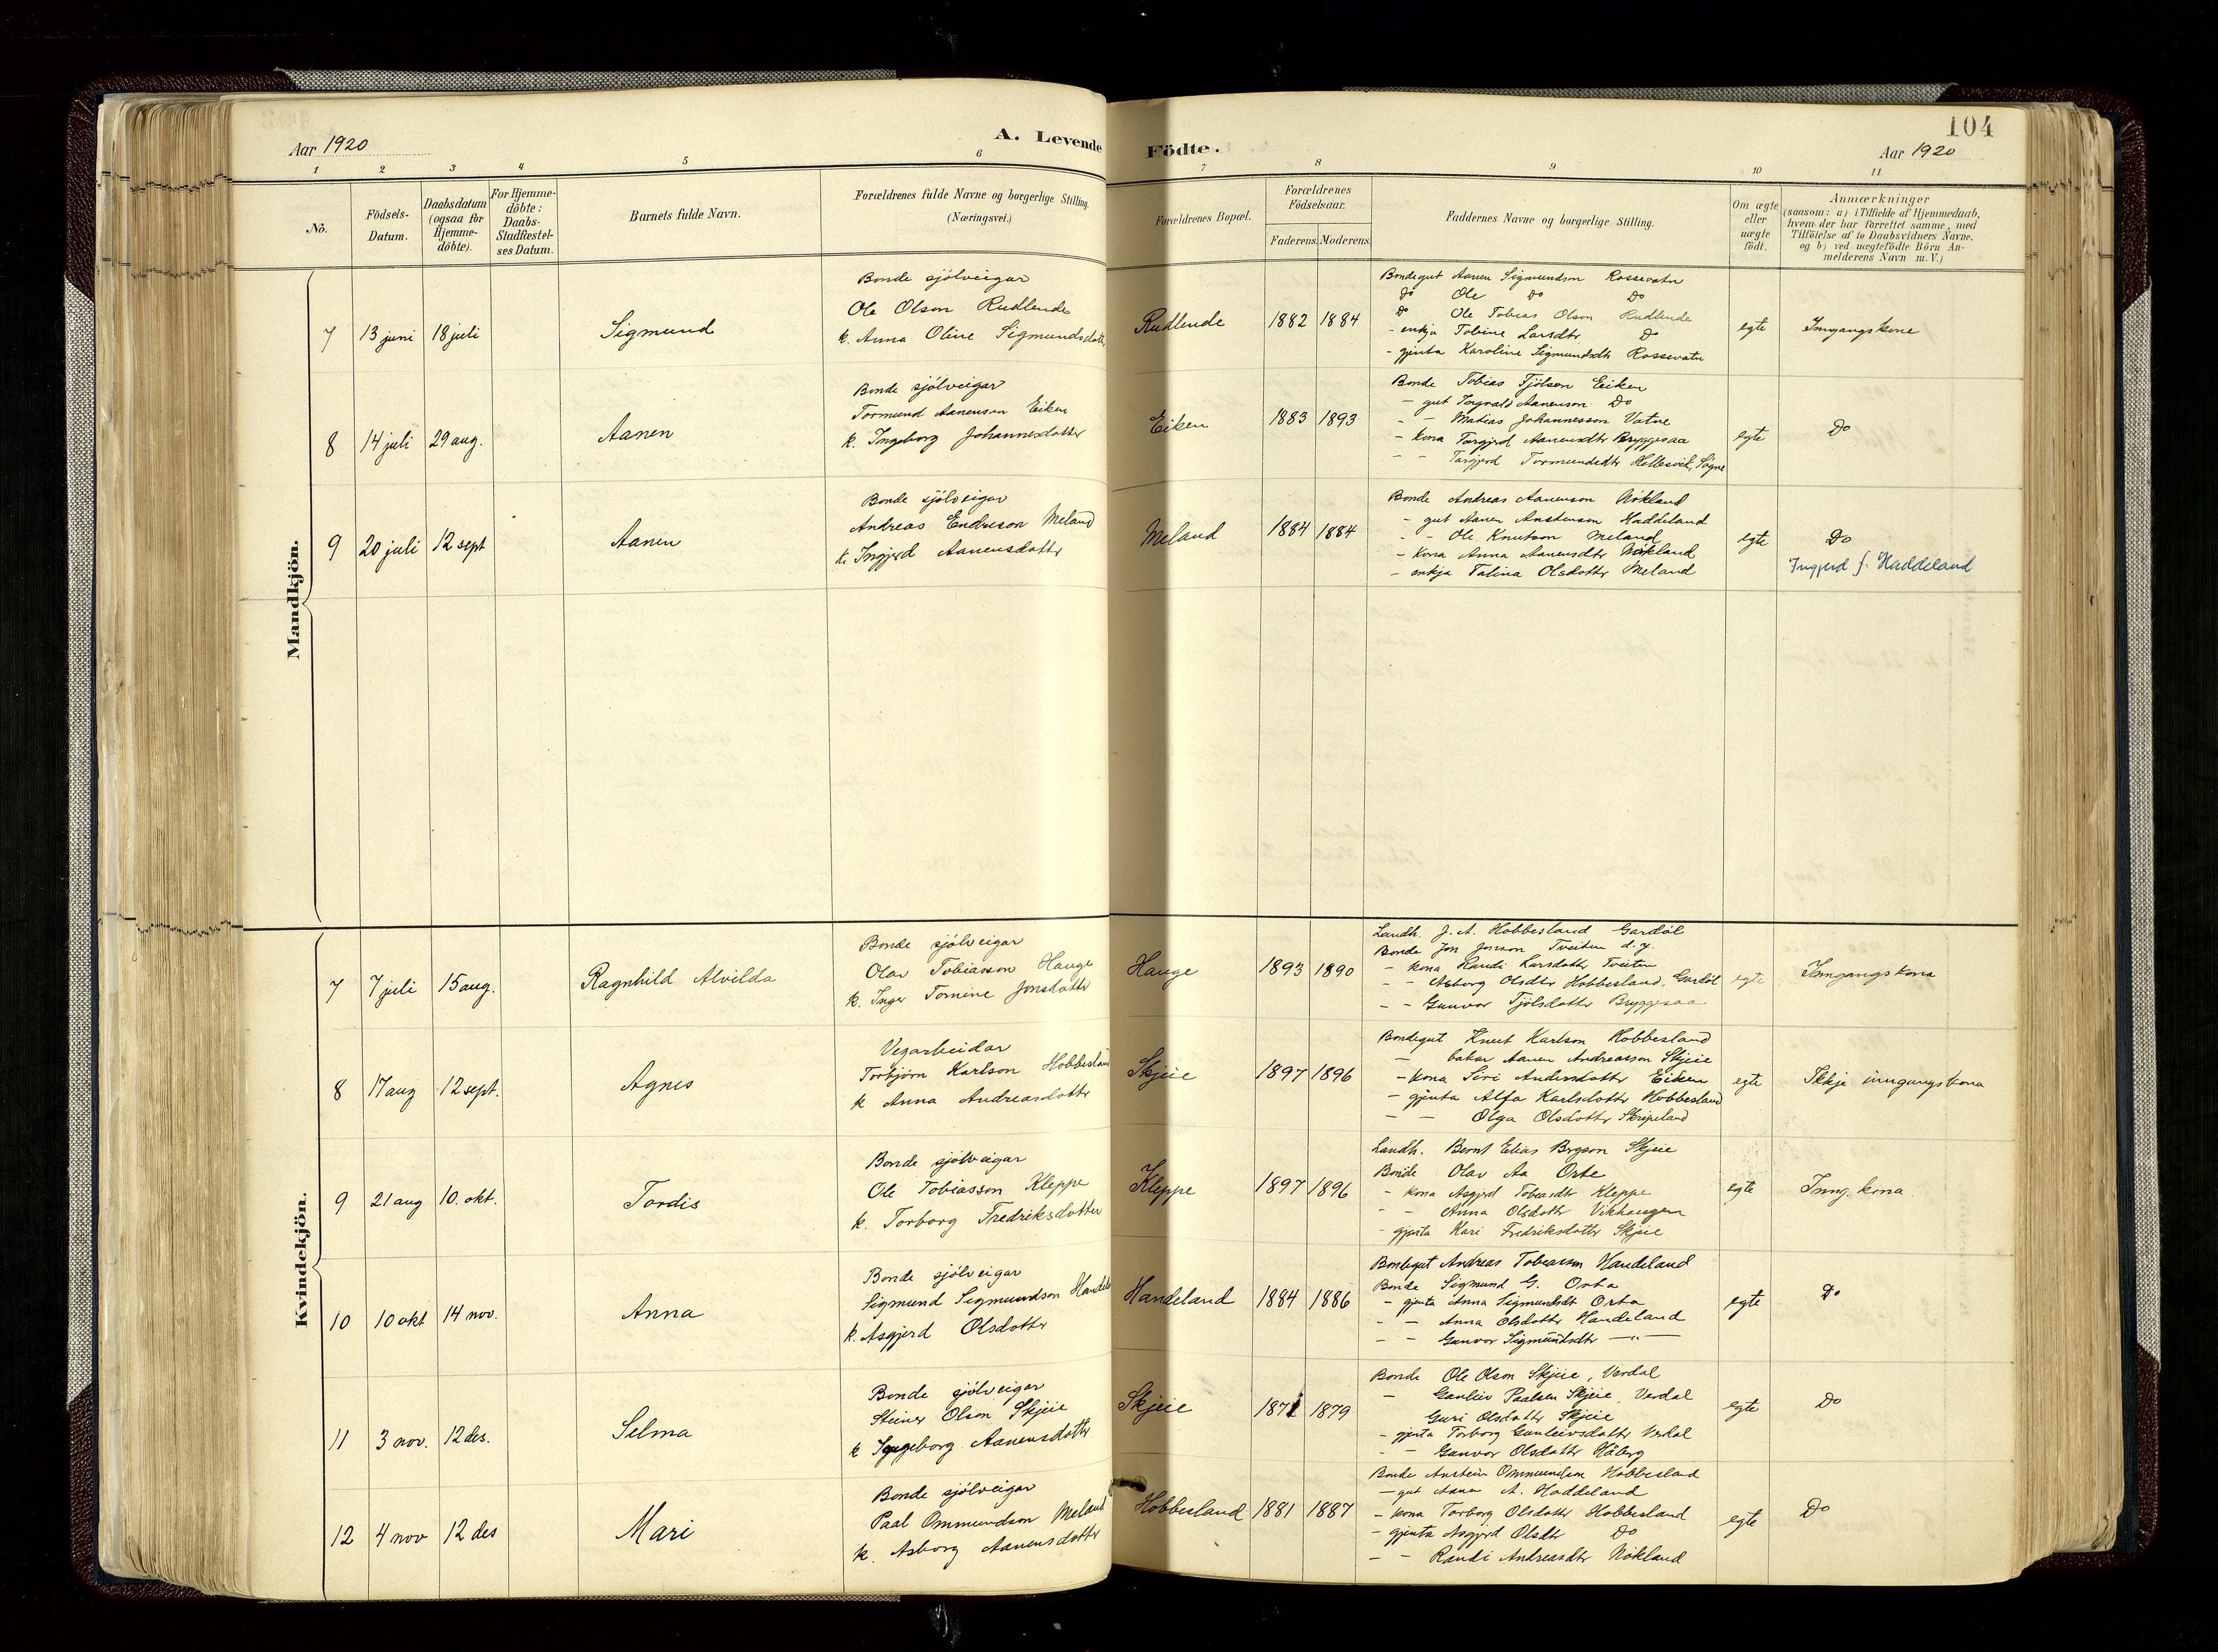 104
Aar 1920
A. Levende Födte.
Aar 1920
1 2 3 4 5 6 7 8 9 10 11
No.
Födsels-Datum.
Daabsdatum (ogsaa for Hjemme-döbte).
For Hjemme-döbte: Daabs-Stadfæstel-ses Datum.
Barnets fulde Navn.
Forældrenes fulde Navne og borgerlige Stilling. (Næringsvei.)
Forældrenes Bopæl.
Forældrenes Födselsaar.
Faderens. Moderens.
Faddernes Navne og borgerlige Stilling.
Om ægte eller uægte födt.
Anmærkninger
(saasom: a) i Tilfælde af Hjemmedaab,
hvem der har forrettet samme, med
Tilföielse af to Daabsvidners Navne,
og b) ved uægtefödte Börn An-
melderens Navn m. V.)
Mandkjön.
7 13 juni 18 juli Sigmund
Bonde sjölveigar
Ole Olson Rudlende
k. Anna Oline Sigmundsdotter
Rudlende 1882 1884
Bondegut Aanen Sigmundson Rossevatn
Do Ole Do Do
Do Ole Tobias Olson Rudlende
- enkja Tobine Larsdtr Do
- gjenta Karoline Sigmundsdtr Rossevatn
egte Inngangskone
8 14 juli 29 aug. Aanen
Bonde sjölveigar
Tormund Aanenson Eiken
k. Ingeborg Johannesdotter
Eiken 1883 1893
Bonde Tobias Tjölson Eiken
- gut Ingvald Aanenson Do
- - Matias Johannesson Vatne
- kona Torgjerd Aanensdtr Bryggesaa
- - Torgjerd Tormundsdtr Hellesvik, Sögne
egte Do
9 20 juli 12 sept Aanen
Bonde sjölveigar
Andreas Endreson Meland
k. Ingjerd Aanensdotter
Meland 1884 1884
Bonde Andreas Aanenson Nökland
- gut Aanen Anstenson Haddeland
- - Ole Knutson Meland
- kona Anna Aanensdtr Nökland
- enkja Talina Olsdotter Meland
egte Do
Ingjerd f. Haddeland
Kvindekjön.
7 7 juli 15 aug. Ragnhild Alvilda
Bonde sjölveigar
Olav Tobiasson Hauge
k. Inger Tomine Jonsdotter
Hauge 1893 1890
Landh. J. A. Hobbesland Gardöl
Bonde Jon Jonson Tveiten d. y.
- kona Randi Larsdotter Tveiten
- - Asborg Olsdtr Hobbesland, Gardöl
- - Gunvor Tjölsdotter Bryggesaa
egte Inngangskona
8 17 aug 12 sept. Agnes
Vegarbeidar
Torbjörn Karlson Hobbesland
k Anna Andreasdotter
Skjeie 1897 1896
Bondegut Knut Karlson Hobbesland
- bakar Aanen Andreasson Skjeie
- kona Siri Andersdotter Eiken
- gjenta Alfa Karlsdotter Hobbesland
- - Olga Olsdotter Skripeland
egte Ikkje inngangskona
9 21 aug 10. okt. Tordis
Bonde sjölveigar
Ole Tobiasson Kleppe
k. Torborg Fredriksdotter
Kleppe 1897 1896
Landh. Bernt Elias Bergson Skjeie
Bonde Olav Aa Orte
- kona Asgjerd Tobiasdtr Kleppe
- - Anna Olsdotter Vikhaugen
- gjenta Kari Fredriksdotter Skjeie
egte Inng. kona
10 10 okt 14 nov. Anna
Bonde sjölveigar
Sigmund Sigmundson Handeland
k. Asgjerd Olsdotter
Handeland 1884 1886
Bondegut Andreas Tobiasson Handeland
Bonde Sigmund G. Orta
- gjenta Anna Sigmundsdt Orta
- - Anna Olsdotter Handeland
- - Gunvor Sigmundsdtr — " —
egte Do
11 3 nov. 12 des. Selma
Bonde sjölveigar
Steiner Olson Skjeie
k Ingeborg Aanensdotter
Skjeie 1871 1879
Bonde Ole Olson Skjeie, Verdal
- Gunleiv Paalson Skjeie, Verdal
Guri Olsdotter Skjeie
- gjenta Torborg Gunleivsdotter Verdal
- - Gunvor Olsdotter Höberg
egte Do
12 4 nov 12 des Mari
Bonde sjölveigar
Paal Ommundson Meland
k. Asborg Aanensdotter
Hobbesland 1881 1887
Bonde Anstein Ommundson Hobbesland
- gut Aanen A. Haddeland
- kona Torborg Olsdotter Hobbesland
- gjenta Asgjerd Olsdtr Do
- - Randi Andreasdtr Nökland
egte Do